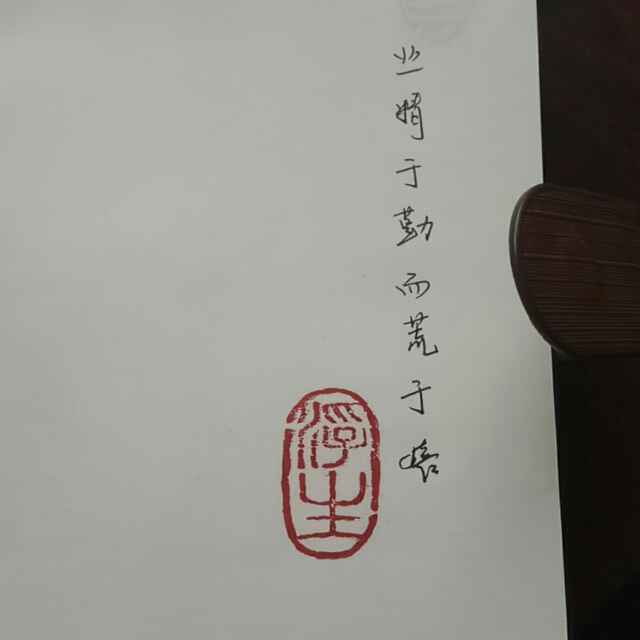 业精于勤而荒于嬉
浮生